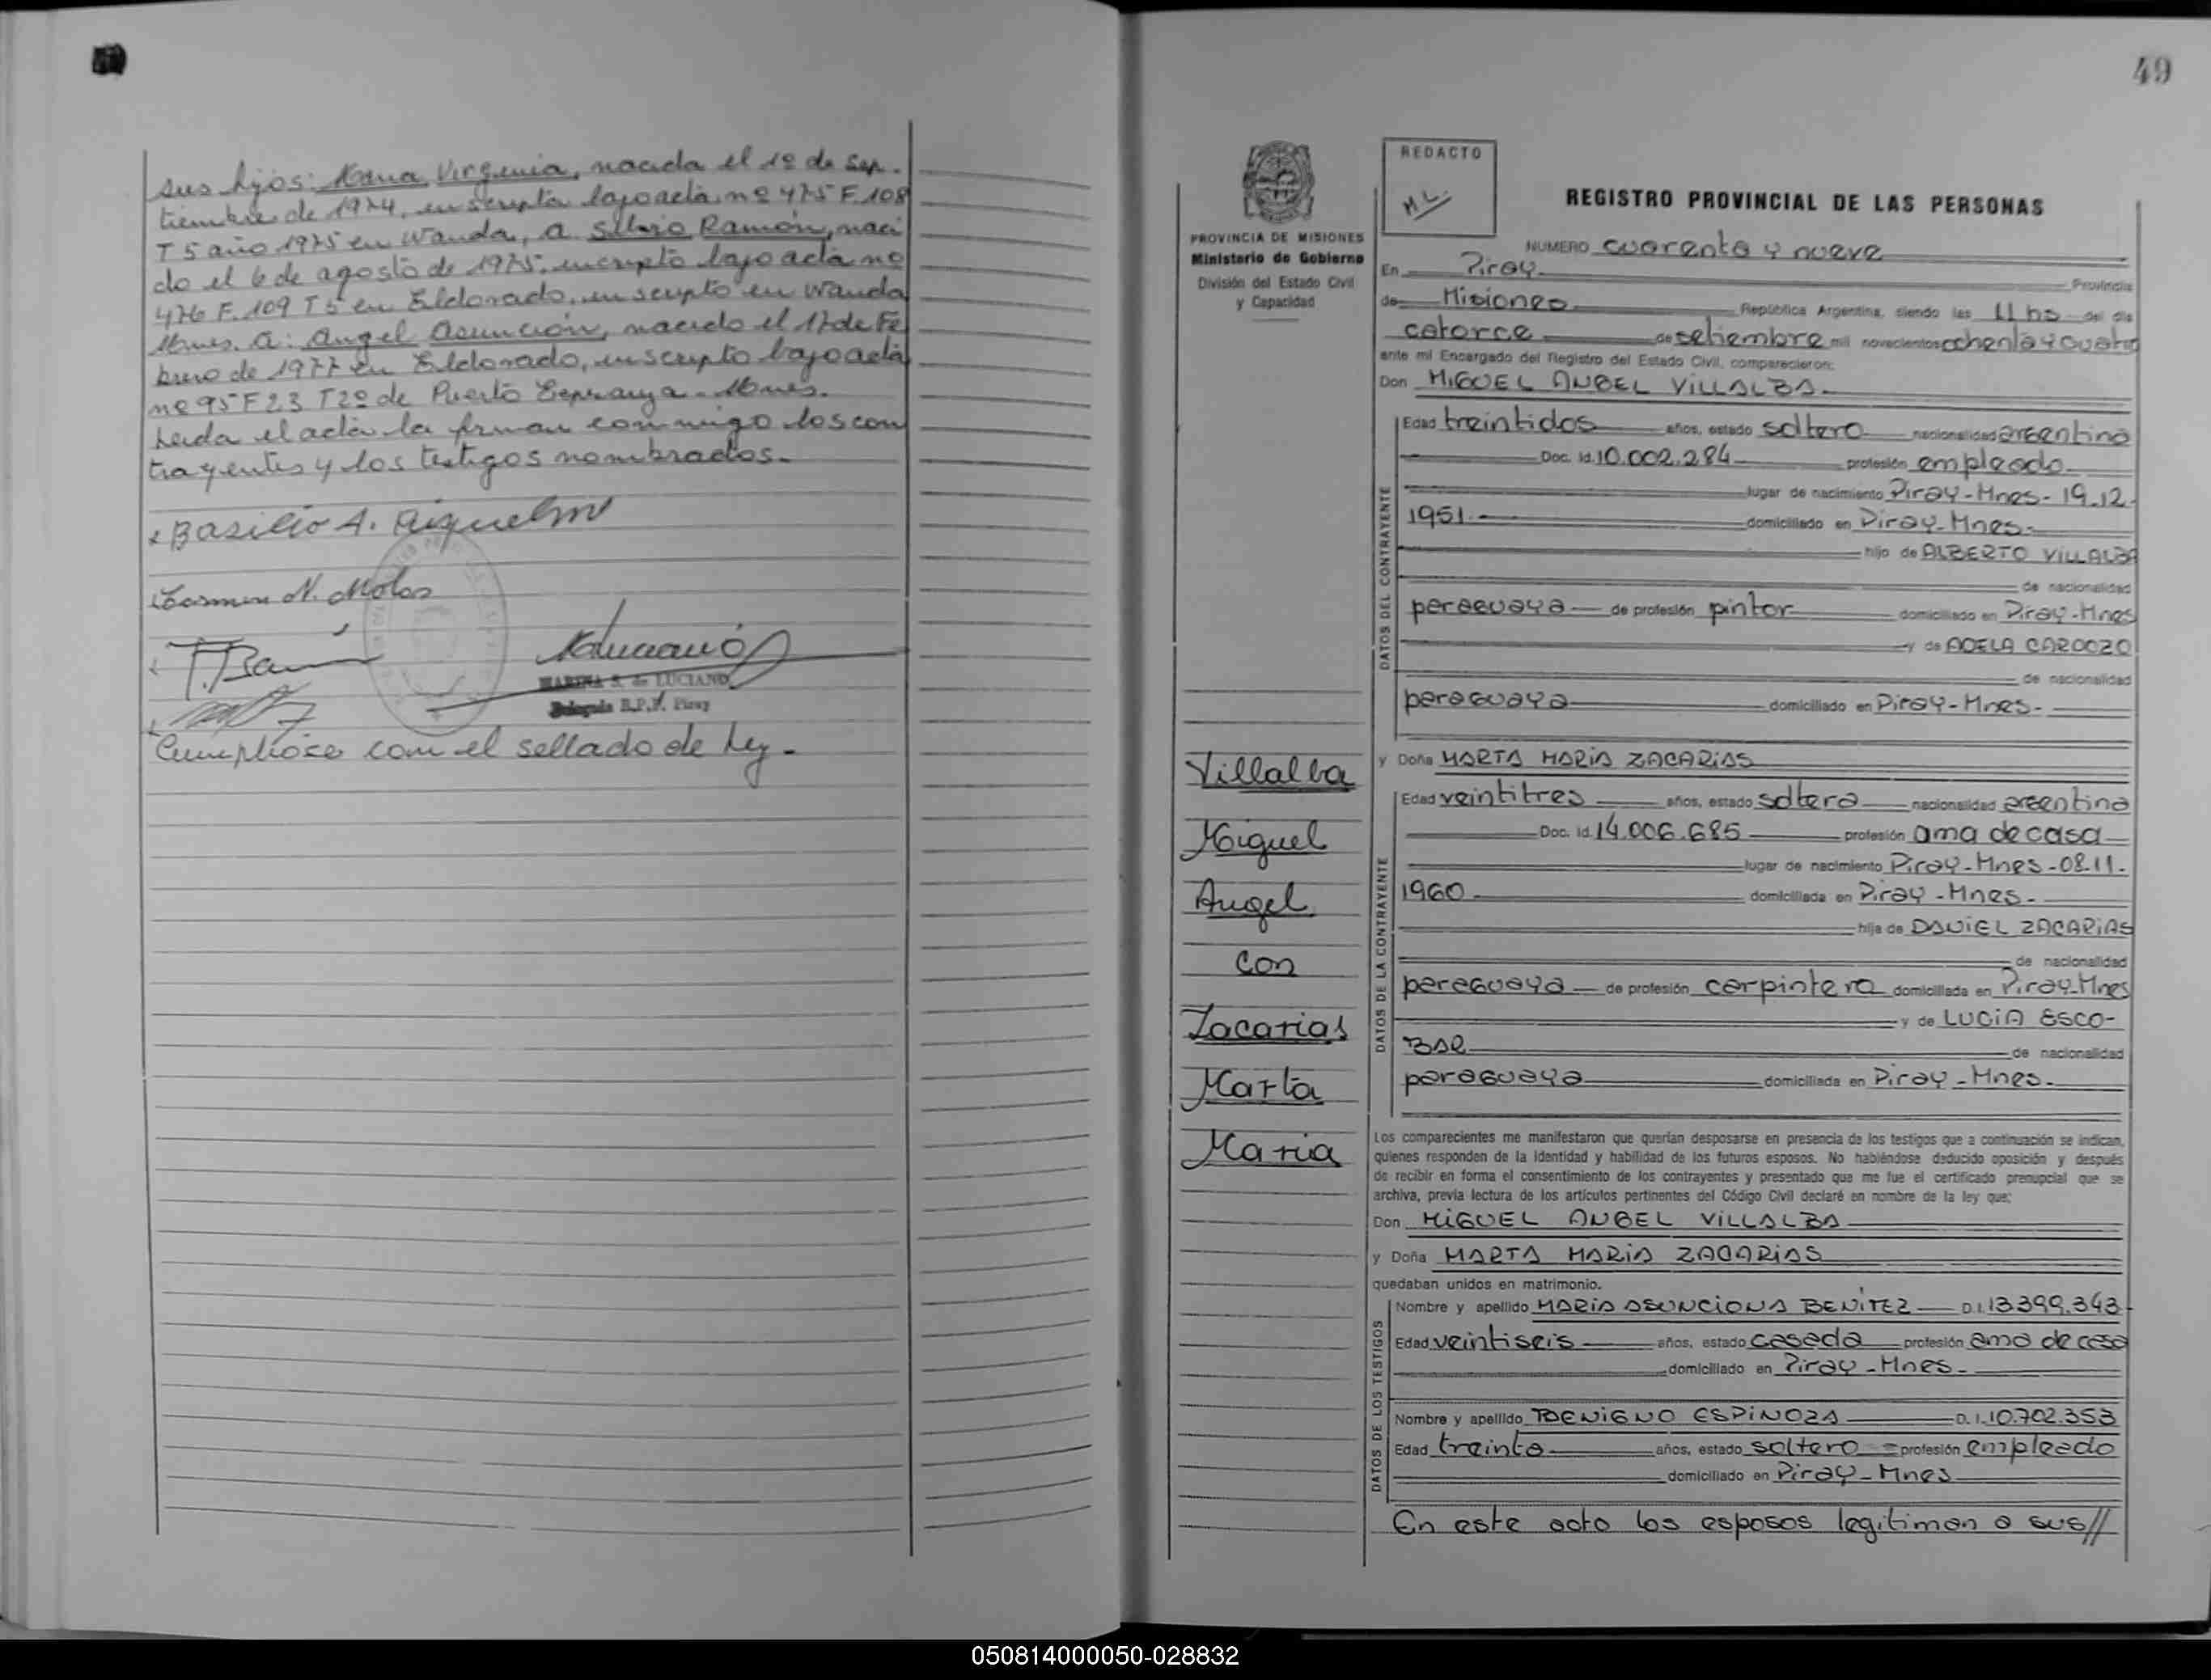 sus hijos: Maria Virginia, nacida el 1º de Sep-
tiembre de 1974, inscripta bajo acta nº 475 F. 108
T 5 año 1975 en Wanda, a Silvio Ramón, naci
do el 6 de agosto de 1975, inscripto bajo acta nº
476 F. 109 T 5 en Eldorado, inscripto en Wanda
Mnes. a: Angel Asunción, nacido el 17 de Fe
brero de 1977 en Eldorado, inscripto bajo acta
nº 95 F 23 T 2º de Puerto Esperanza - Mnes.
Leida el acta la firman conmigo los con
trayentes y los testigos nombrados.-
Basilio A. Riquelme
Carmen N. Molas
MARINA S. de LUCIANO
Delegada R.P.P. Piray
Cumplióse con el sellado de Ley -
49
PROVINCIA DE MISIONES
Ministerio de Gobierno
División del Estado Civil
y Capacidad
REDACTO
ML
REGISTRO PROVINCIAL DE LAS PERSONAS
NUMERO cuarenta y nueve
En Piray Provincia
de Misiones República Argentina, siendo las 11 hs del día
catorce de setiembre mil novecientos ochenta y cuatro
ante mí Encargado del Registro del Estado Civil, comparecieron:
Don MIGUEL ANGEL VILLALBA
Edad treintidos años, estado soltero nacionalidad argentina
Doc. Id. 10.002.284 profesión empleado
lugar de nacimiento Piray-Mnes- 19.12.
1951.- domiciliado en Piray-Mnes-
hijo de ALBERTO VILLALBA
de nacionalidad
paraguaya de profesión pintor domiciliado en Piray-Mnes
y de ADELA CARDOZO
de nacionalidad
paraguaya domiciliado en Piray-Mnes-
y Doña MARTA MARIA ZACARIAS
Edad veintitres años, estado soltera nacionalidad argentina
Doc. Id. 14.006.685 profesión ama de casa
lugar de nacimiento Piray-Mnes-08.11.
1960 domiciliada en Piray-Mnes-
hija de DANIEL ZACARIAS
de nacionalidad
paraguaya de profesión carpintero domiciliada en Piray-Mnes
y de LUCIA ESCO-
BAR de nacionalidad
paraguaya domiciliada en Piray-Mnes-
DATOS DEL CONTRAYENTE
DATOS DE LA CONTRAYENTE
Villalba
Miguel
Angel
con
Zacarias
Marta
Maria
Los comparecientes me manifestaron que querían desposarse en presencia de los testigos que a continuación se indican,
quienes responden de la identidad y habilidad de los futuros esposos. No habiéndose deducido oposición y después
de recibir en forma el consentimiento de los contrayentes y presentado que me fue el certificado prenupcial que se
archiva, previa lectura de los artículos pertinentes del Código Civil declaré en nombre de la ley que:
Don MIGUEL ANGEL VILLALBA
y Doña MARTA MARIA ZACARIAS
quedaban unidos en matrimonio.
DATOS DE LOS TESTIGOS
Nombre y apellido MARIA ASUNCIONA BENITEZ D.I. 13.399.343
Edad veintiseis años, estado casada profesión ama de casa
domiciliado en Piray-Mnes-
Nombre y apellido BENIGNO ESPINOZA D.I. 10.702.353
Edad treinta años, estado soltero profesión empleado
domiciliado en Piray-Mnes
En este acto los esposos legitiman a sus//
050814000050-028832